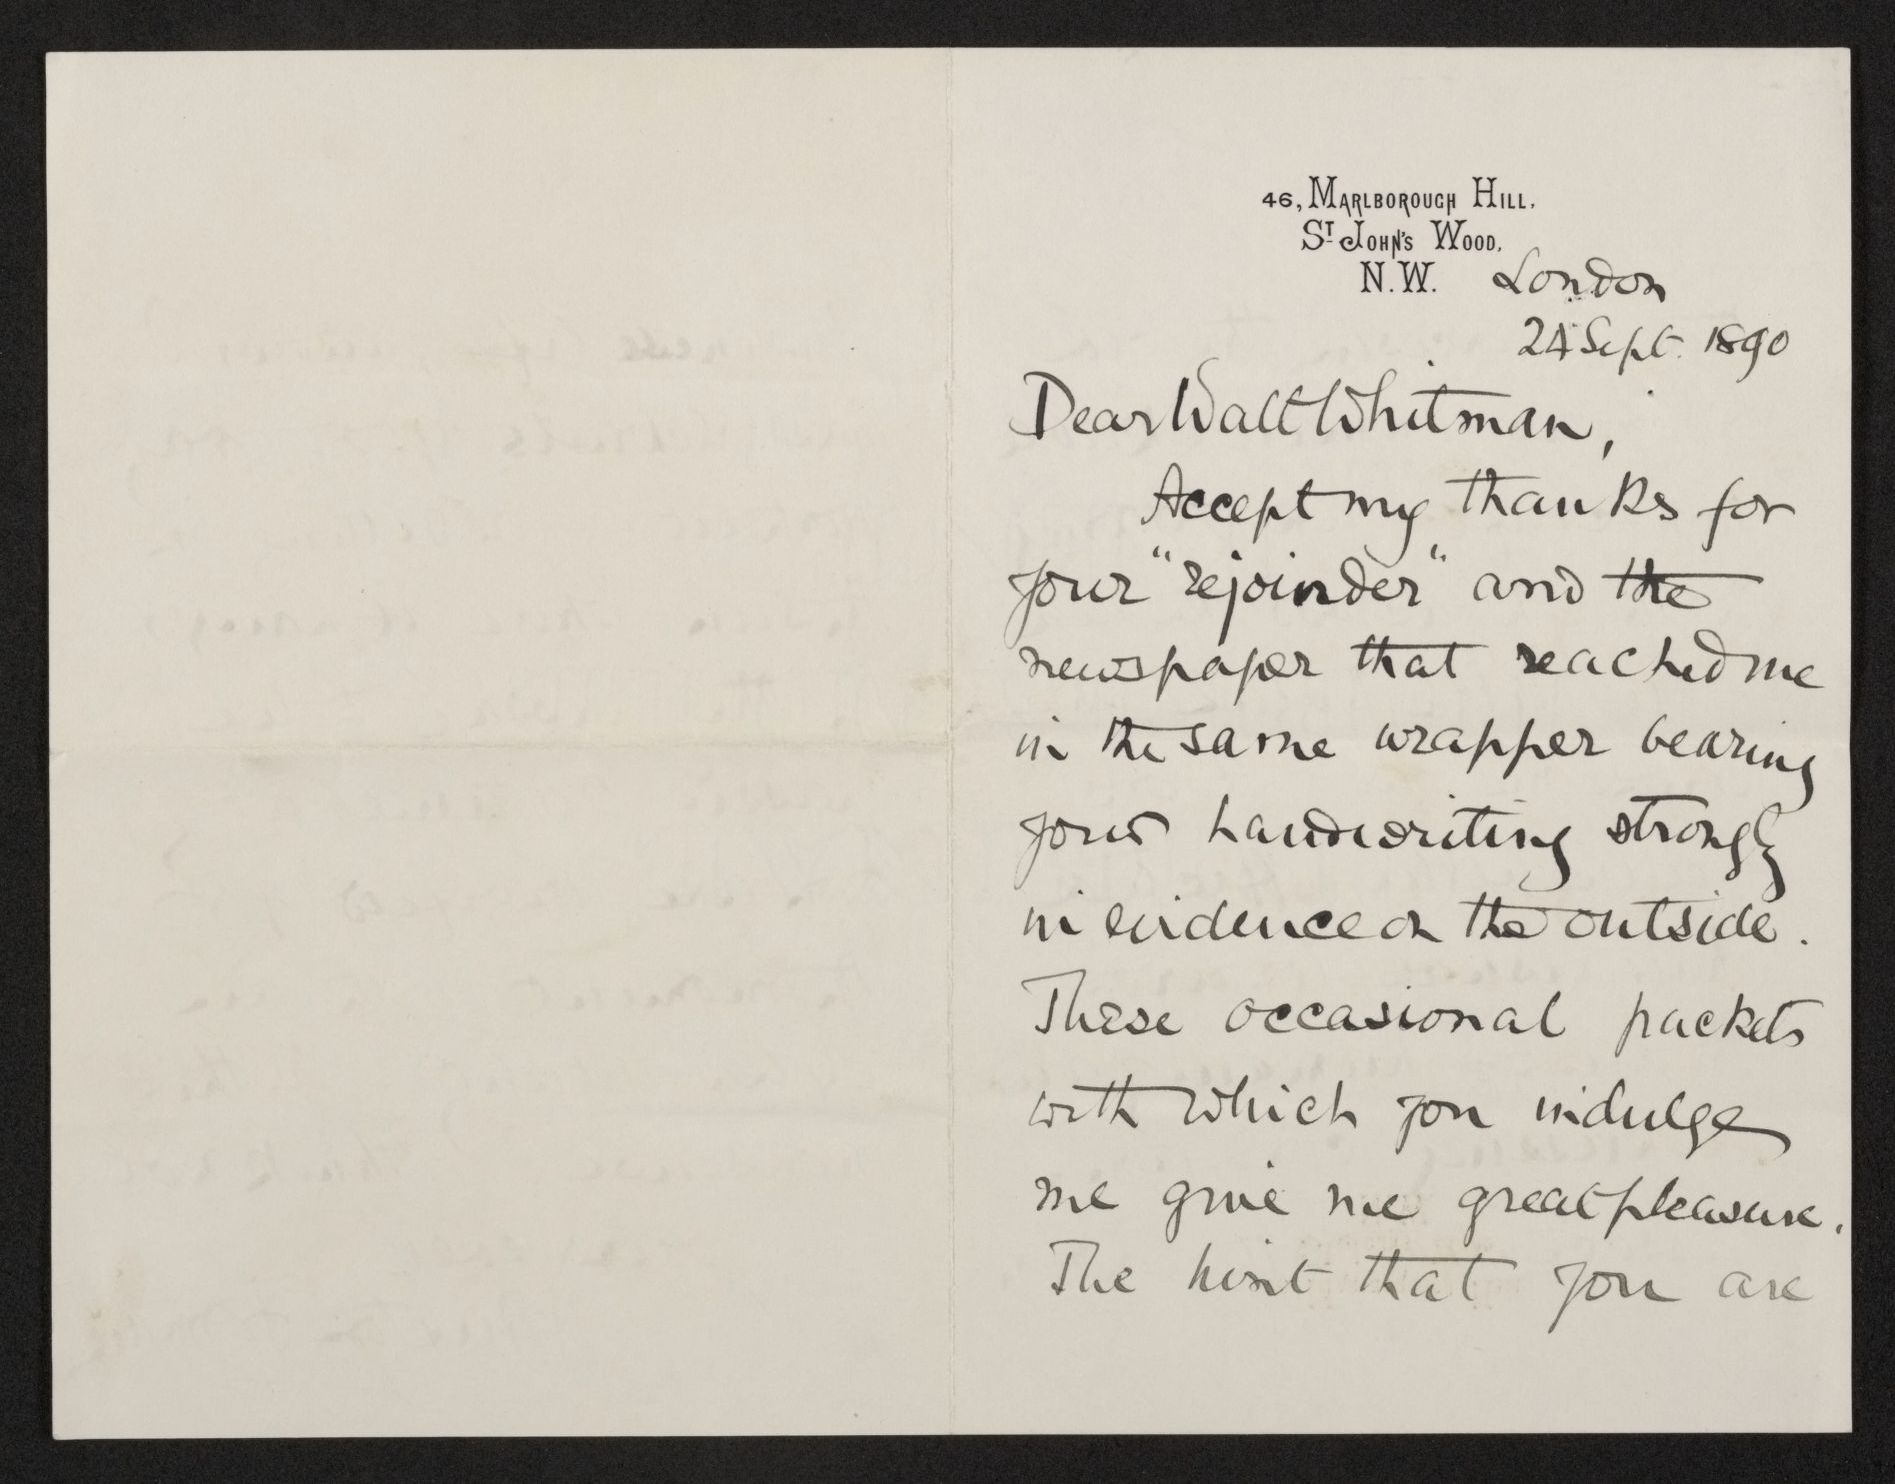 46, Marlborough Hill,
St John's Wood,
N.W. London
24 Sept. 1890
Dear Walt Whitman,
Accept my thanks for
your "rejoinder" and the
newspaper that reached me
in the same wrapper bearing
your handwriting strongly
in evidence on the outside.
These occasional packets
with which you indulge
me give me great pleasure.
The hint that you are